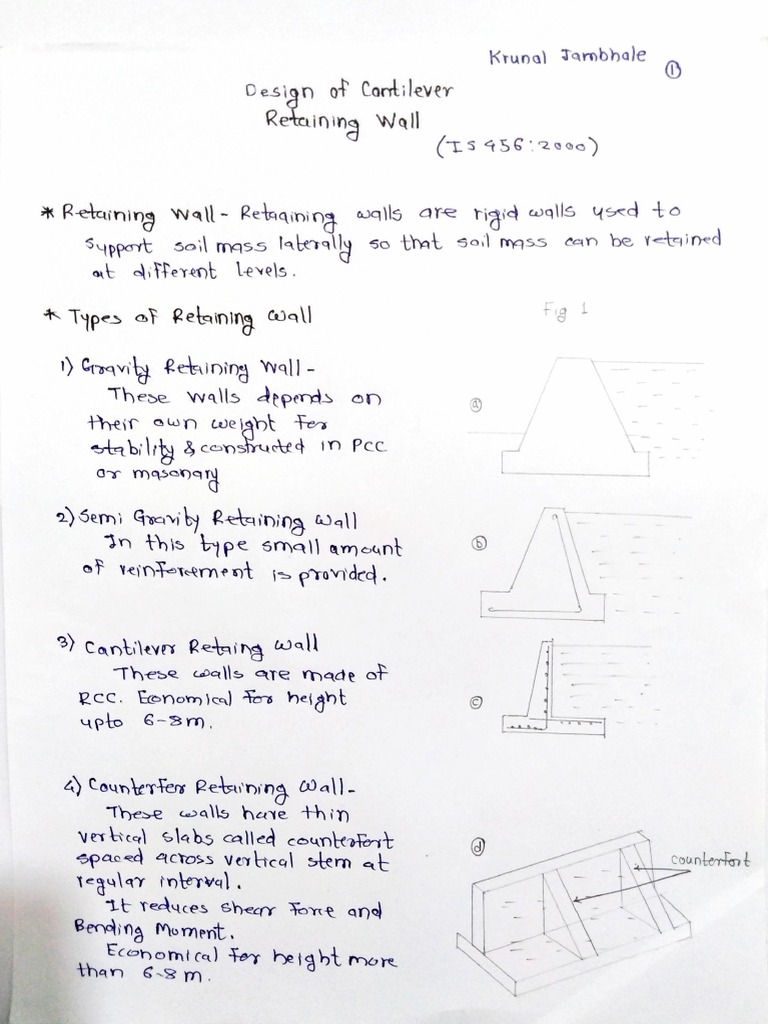 Krunal Jambhale
1
Design of Cantilever
Retaining Wall
(IS 456:2000)
* Retaining Wall - Retaaining walls are rigid walls used to
support soil mass laterally so that soil mass can be retained
at different levels.
* Types of Retaining Wall
Fig 1
1) Gravity Retaining Wall -
These walls depends on
their own weight for
stability & constructed in PCC
or masonary
a
2) Semi Gravity Retaining Wall
In this type small amount
of reinforcement is provided.
b
3) Cantilever Retaing Wall
These walls are made of
RCC. Economical for height
upto 6-8m.
c
4) Counterfer Retaining Wall -
These walls have thin
vertical slabs called counterfort
spaced across vertical stem at
regular interval.
It reduces shear force and
Bending Moment.
Economical for height more
than 6-8m.
d
counterfort